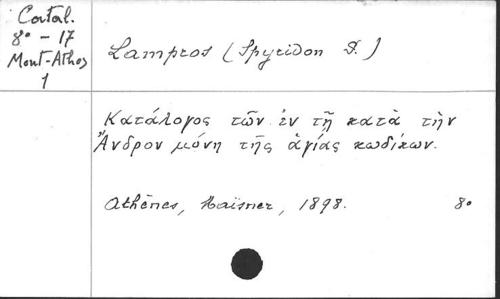 Catal.
8° - 17
Mont-Athos
1
Lampros (Spyridon D.)
Κατάλογος τῶν ἐν τῇ κατὰ τὴν
Ἄνδρον μόνη τῆς ἁγίας κωδίκων.
Athènes, 1898. 8°